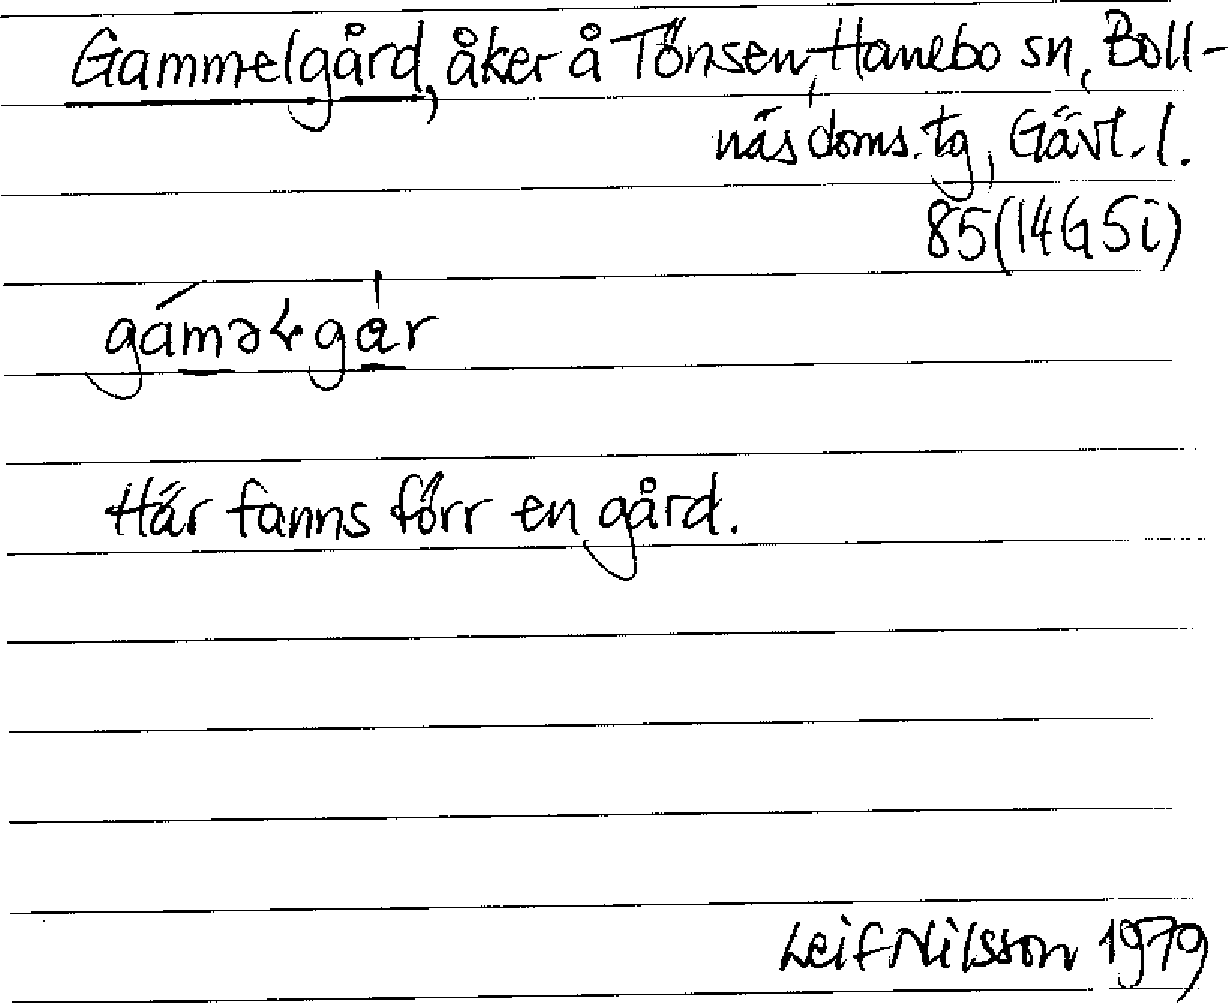 Gammelgård, åker å Tönsen, Hanebo sn, Boll-
näs doms. tg, Gävl. l.
85 (14G5i)
gáməɬgår
Här fanns förr en gård.
Leif Nilsson 1979